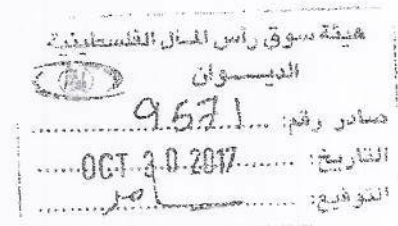 هيئة سوق رأس المال الفلسطينية
الديوان
صادر رقم: 9571
التاريخ: OCT 30 2017
التوقيع: